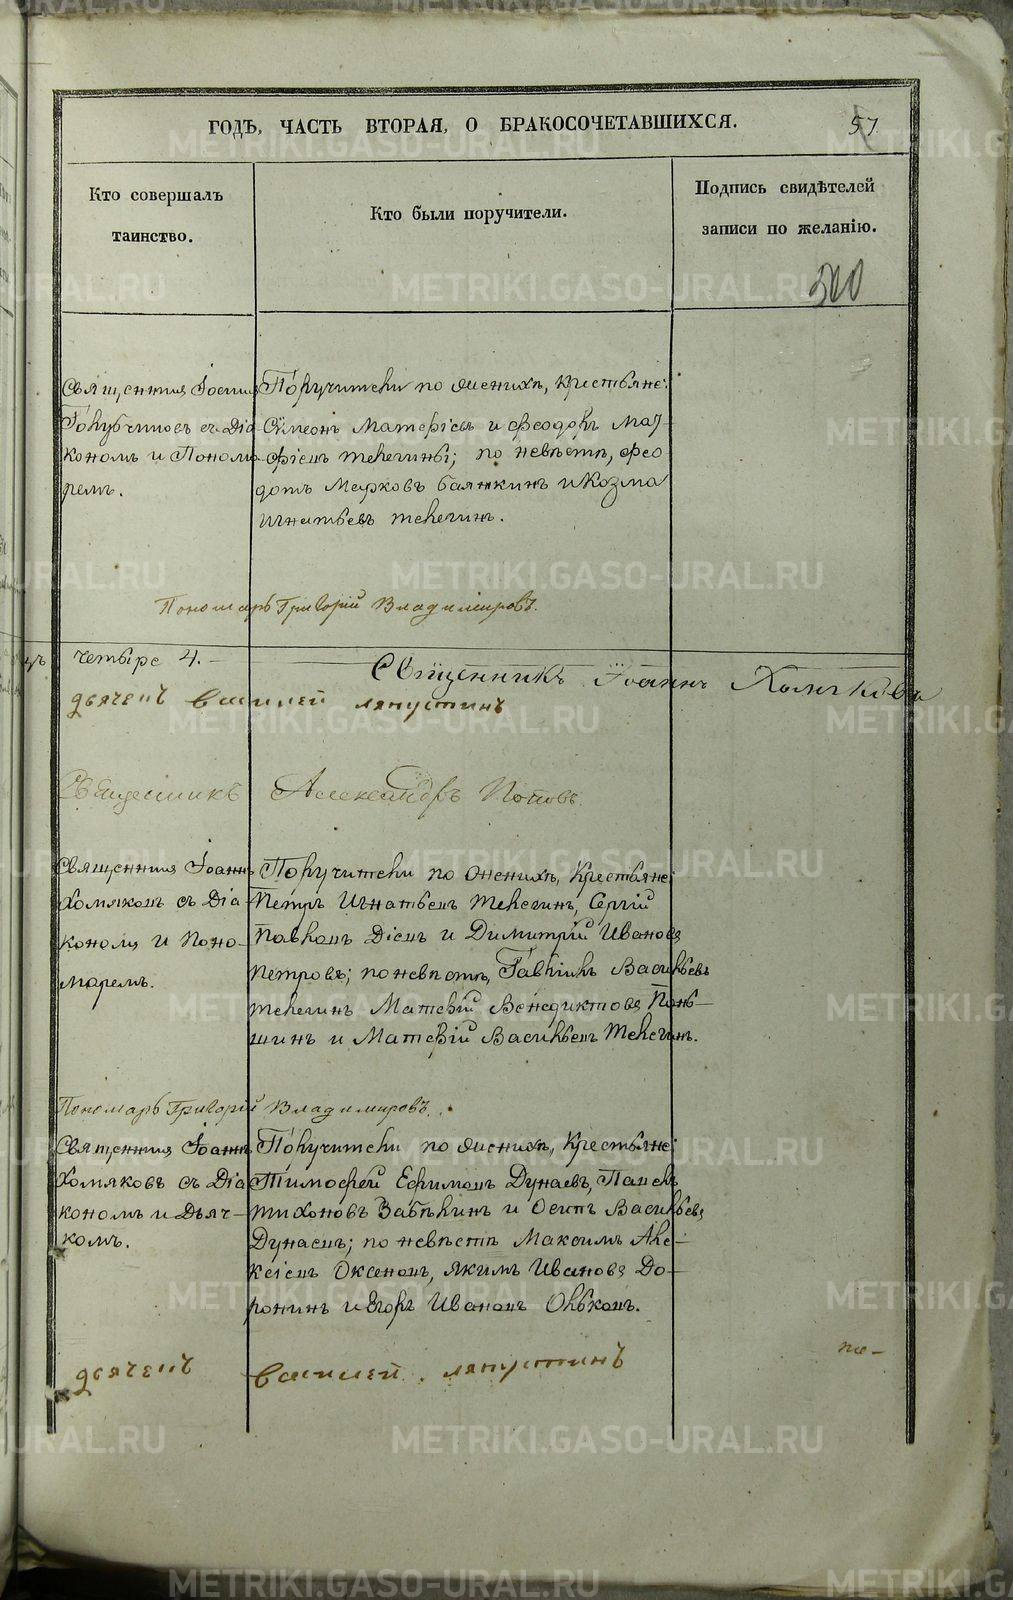 ГОДЪ, ЧАСТЬ ВТОРАЯ, О БРАКОСОЧЕТАВШИХСЯ.
57
Кто совершалъ
таинство.
Кто были поручители.
Подпись свидѣтелей
записи по желанію.
500
Священник
съ Діа-
кономъ и Понома-
ремъ.
Поручители по женихѣ, Крестьяне:
Сүмеонъ Матфіевъ и Феодоръ Мат-
фіевъ Телегины; по невѣстѣ, Фео
дотъ Марковъ Баянкинъ и Козма
Игнатьевъ Телегинъ.
Пономарь Григорій Владиміровъ.
четыре 4.
Священникъ Іоаннъ Хомяковъ
дьячекъ василей ляпустинъ
Священникъ Александръ Поповъ.
Священник Іоаннъ
Хомяковъ съ Діа-
кономъ и Поно-
маремъ.
Поручители по женихѣ, Крестьяне:
Петръ Игнатьевъ Телегинъ, Сергій
Павловъ и Димитрій Ивановъ
Петровъ; по невѣстѣ, Гавріилъ Васильевъ
Телегинъ Матвій Венедиктовъ Пань-
шинъ и Матвій Васильевъ Телегинъ.
Пономарь Григорій Владиміровъ.
Священник Іоаннъ
Хомяковъ съ Діа
кономъ и Дьяч-
комъ.
Поручители по женихѣ, Крестьяне:
Тимофей Ефимовъ Дунаевъ, Павелъ
Тихоновъ Забѣлинъ и Осипъ Васильевъ
Дунаевъ; по невѣстѣ Максимъ Але-
ксіевъ Оксеновъ, Якимъ Ивановъ До-
ронинъ и Егоръ Ивановъ Ольковъ.
дьячекъ василей ляпустинъ
METRIKI.GASO-URAL.RU